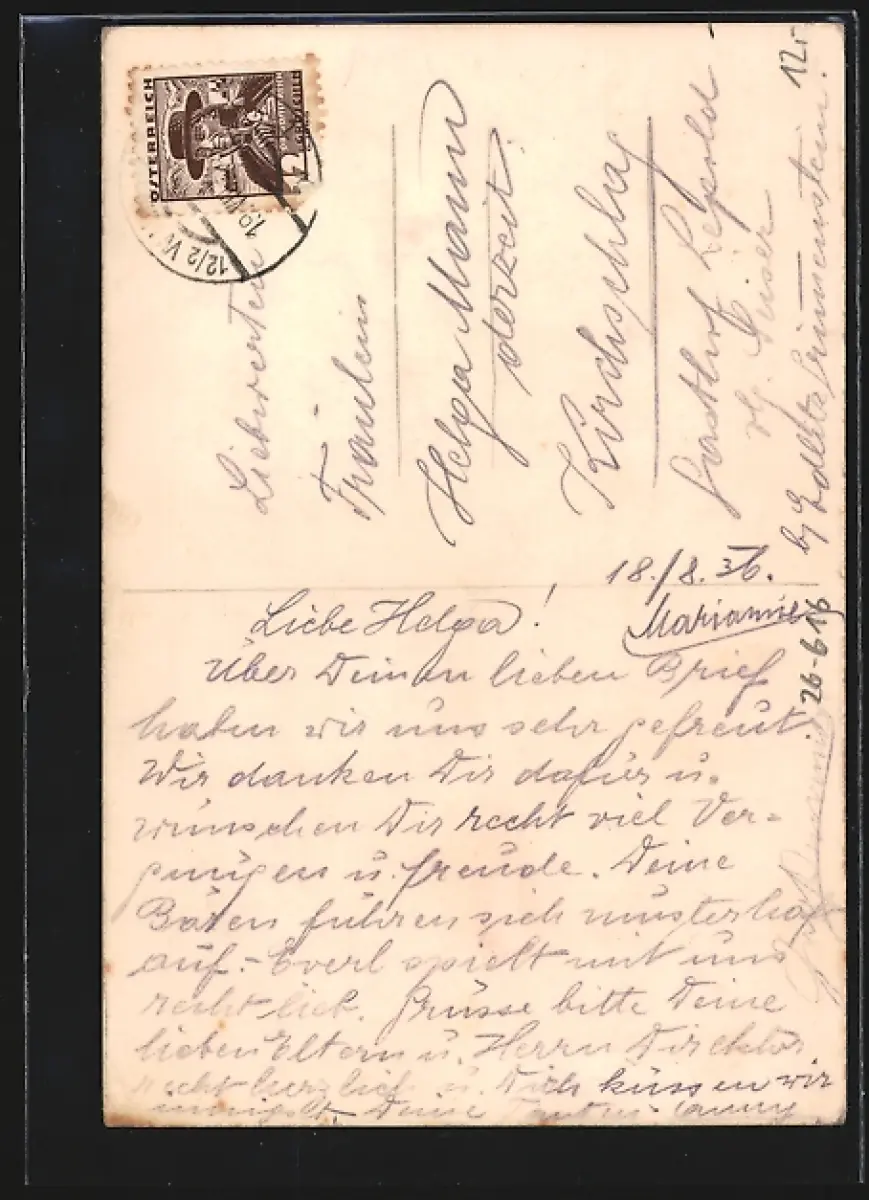 ÖSTERREICH
GROSCHEN
12
12/2 VI
Liebwertes
Fräulein
Helga Mann
derzeit:
Kirchschlag
Gasthof Lepold
12.-
18./8. 36.
Marianne
26-6-16
Liebe Helga!
Über Deinen lieben Brief
haben wir uns sehr gefreut.
Wir danken Dir dafür u.
wünschen Dir recht viel Ver=
gnügen u. Freude. Deine
Bären führen sich musterhaft
auf.- Everl spielt mit uns
recht lieb. Grüsse bitte Deine
lieben Eltern u. Herrn Direktor
recht herzlich u. Dich küssen wir
innigst. Deine Tanten